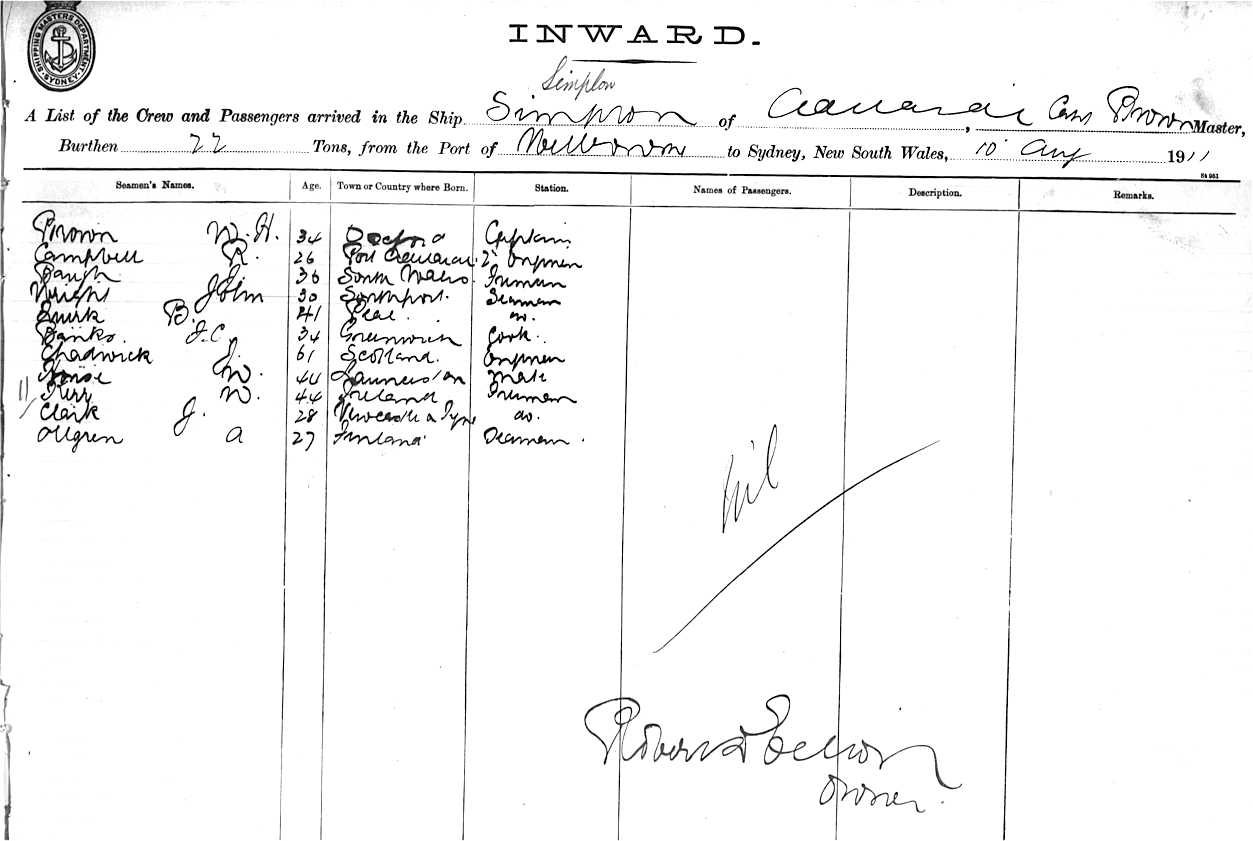 SHIPPING MASTERS DEPARTMENT
SYDNEY
INWARD.
Simplon
A List of the Crew and Passengers arrived in the Ship Simpson of Adelaide, Brown Master,
Burthen 22 Tons, from the Port of Melbourne to Sydney, New South Wales, 10 Aug 1911
S4 951
Seamen's Names. Age. Town or Country where Born. Station. Names of Passengers. Description. Remarks.
Brown W. H. 34 Captain
Campbell R. 26 Port 2
36 South Wales. Fireman
Wright John 30 Southport. Seaman
Quirk B. 41 Peel. do.
Banks. J. C. 34 Greenwich Cook.
Chadwick J. 61 Scotland.
W. 44 Launceston Mate
Kerr W. 44 Ireland Fireman
11 Clark J. 28 Newcastle a Tyne do.
Ollgren A 27 Finland Seaman.
Nil
Robert
Owner.